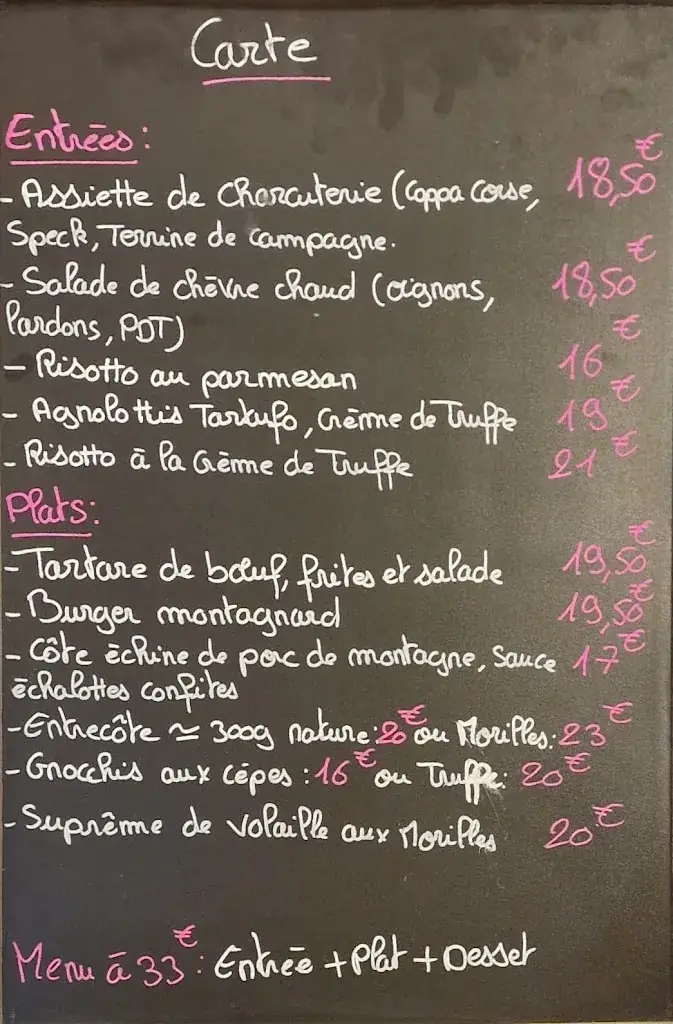 Carte
Entrées :
- Assiette de charcuterie (coppa corse, 18,50 €
Speck, Terrine de campagne.
- Salade de chèvre chaud (oignons, 18,50 €
lardons, PDT)
- Risotto au parmesan 16 €
- Agnolottis Tartufo, Crème de Truffe 19 €
- Risotto à la Crème de Truffe 21 €
Plats :
- Tartare de bœuf, frites et salade 19,50 €
- Burger montagnard 19,50 €
- Côte échine de porc de montagne, Sauce 17 €
échalottes confites
- Entrecôte ≃ 300g nature : 20 € ou Morilles : 23 €
- Gnocchis aux cépes : 16 € ou Truffe : 20 €
- Suprême de volaille aux Morilles 20 €
Menu à 33 € : Entrée + Plat + Desset